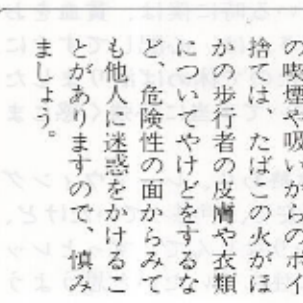 の喫煙や吸いがらのポイ
捨ては、たばこの火がほ
かの歩行者の皮膚や衣類
についてやけどをするな
ど、危険性の面からみて
も他人に迷惑をかけるこ
とがありますので、慎み
ましょう。